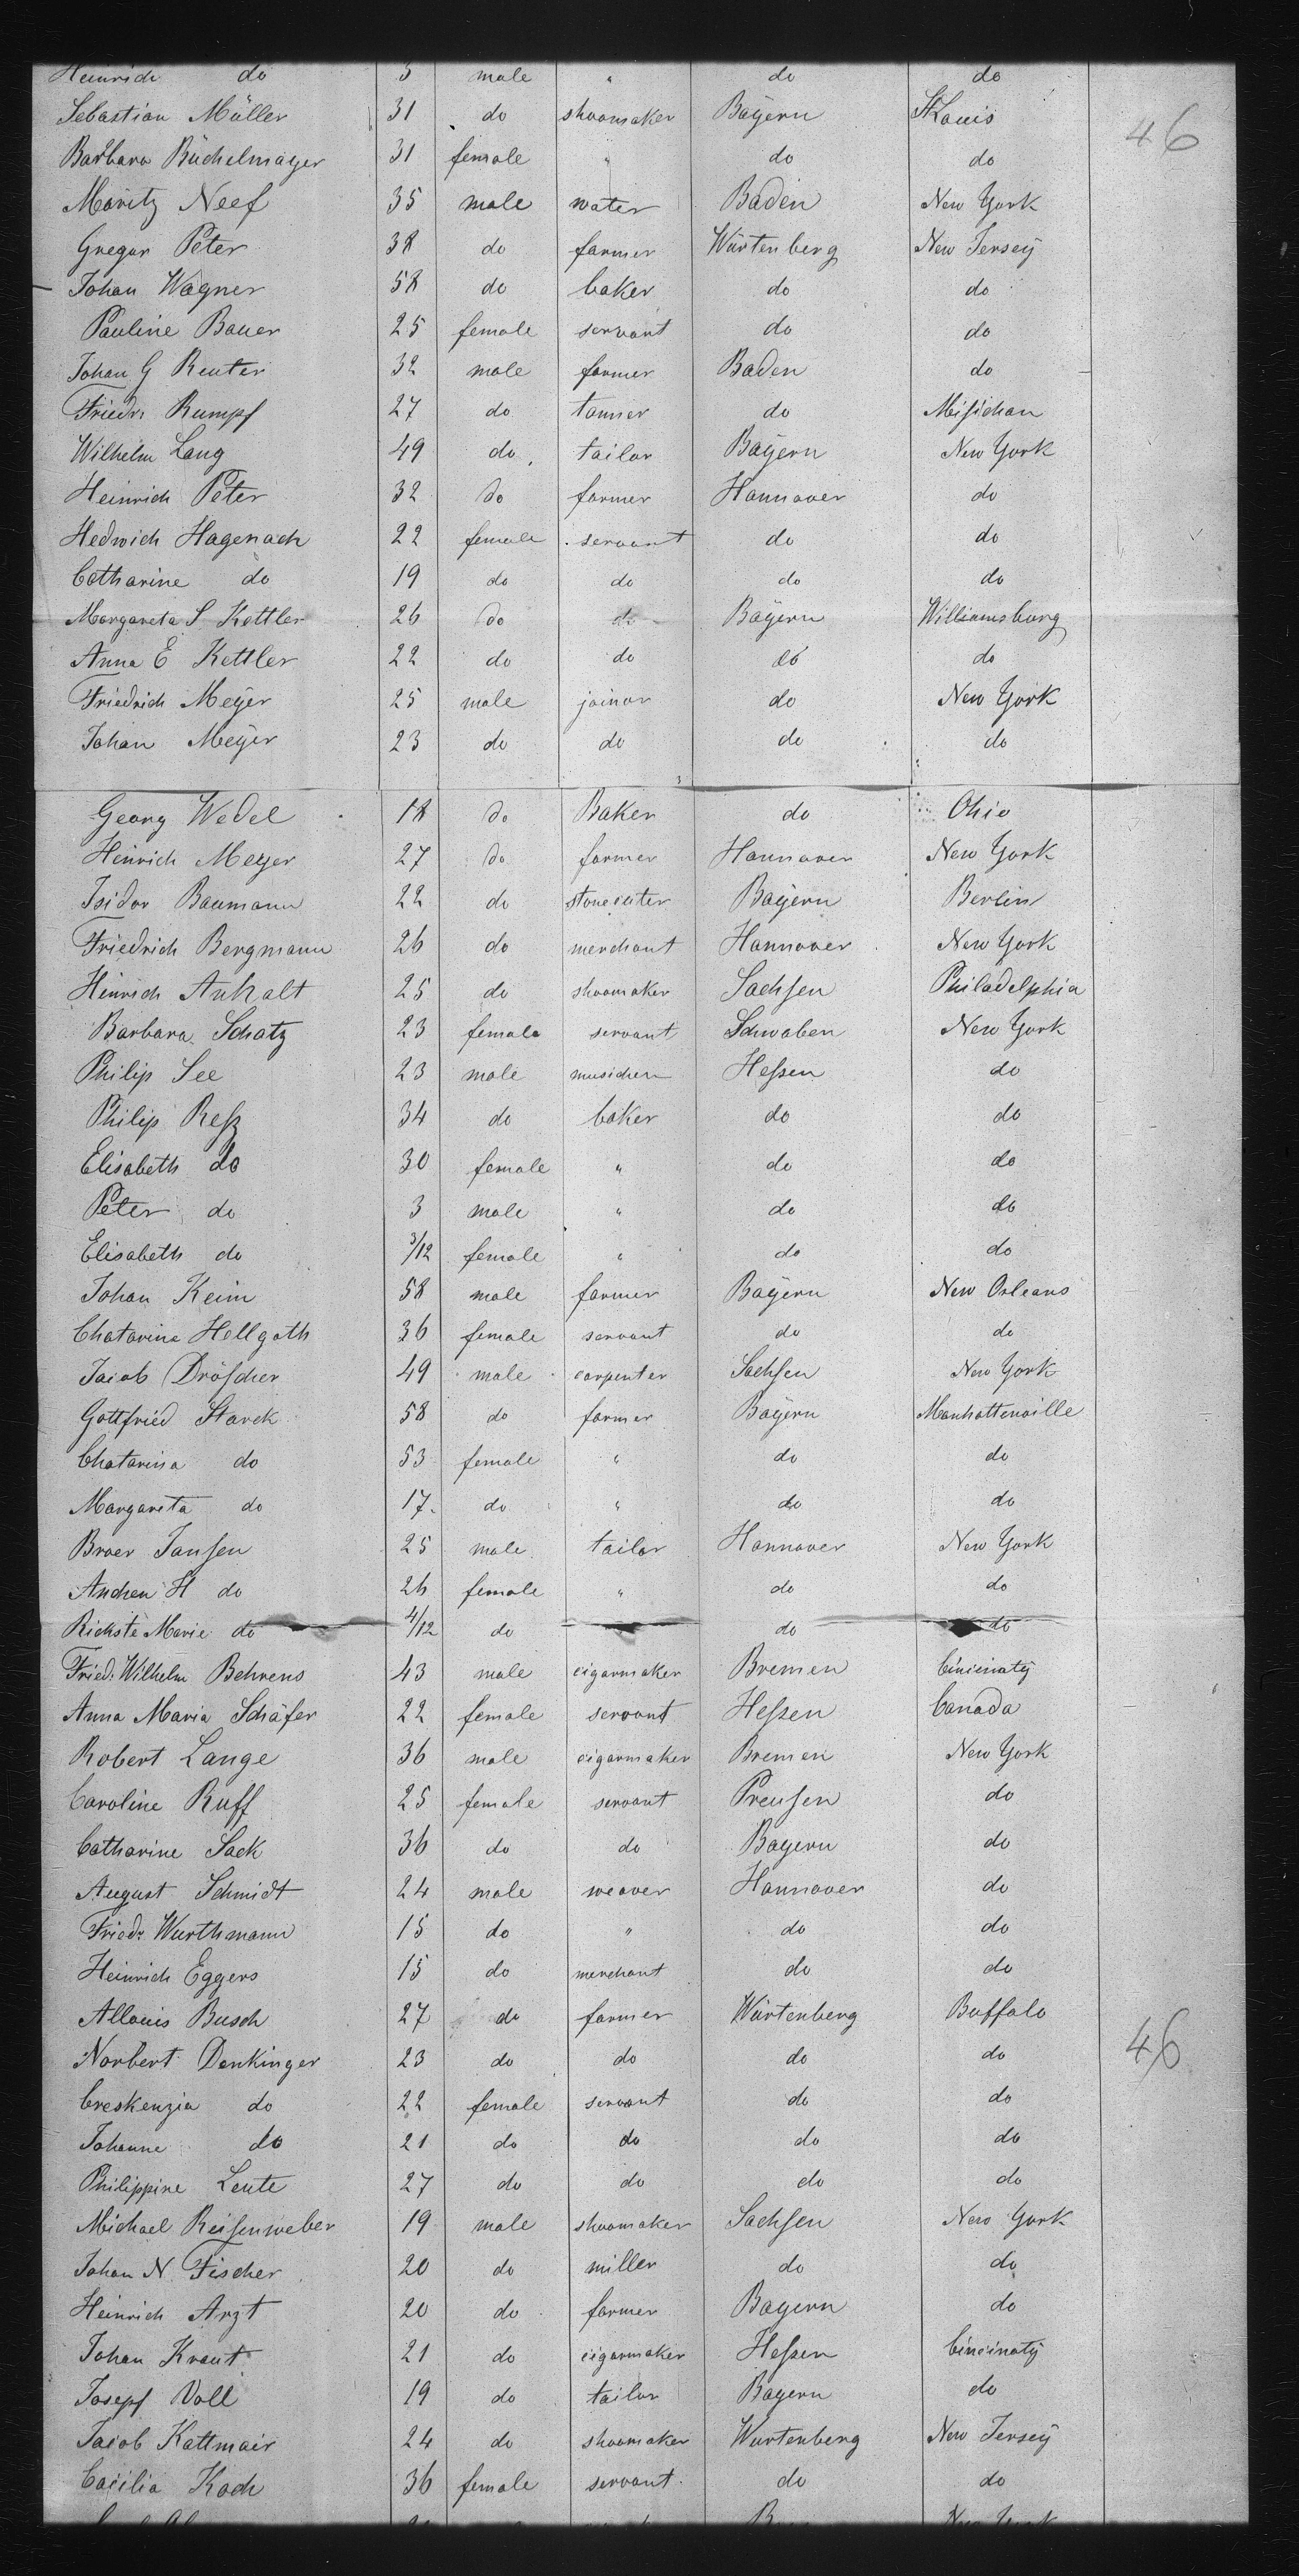 Heinrich do 5 male " do do
Sebastian Müller 31 do shoomaker Bayern St Louis
46
Barbara Büchelmayer 31 female " do do
Moritz Neef 35 male water Baden New York
Gregor Peter 38 do farmer Würtenberg New Jerseÿ
Johan Wagner 58 do baker do do
Pauline Bauer 25 female servant do do
Johan G Reuter 32 male farmer Baden do
Friedr. Rumpf 27 do tanner do Misichan
Wilhelm Lang 49 do tailor Bayern New York
Heinrich Peter 32 do farmer Hannover do
Hedwich Hagenach 22 female servant do do
Catharine do 19 do do do do
Margareta S. Kettler 26 do do Bayern Williamsburg
Anna E Kettler 22 do do do do
Friedrich Meÿer 25 male joinor do New York
Johan Meÿer 23 do do do do
Georg Wedel 18 do Baker do Ohio
Heinrich Meyer 27 do farmer Hannover New York
Isidor Baumann 22 do stonecuter Bayern Berlin
Friedrich Bergmann 26 do merchant Hannover New York
Hinrich Anhalt 25 do shoomaker Sachsen Philadelphia
Barbara Schatz 23 female servant Schwaben New York
Philip See 23 male musichen Hessen do
Philip Ress 34 do baker do do
Elisabeth do 30 female " do do
Peter do 3 male " do do
Elisabeth do 3/12 female " do do
Johan Keim 58 male farmer Bayern New Orleans
Chatarina Hellgoth 36 female servant do do
Jacob Dröscher 49 male carpenter Sachsen New York
Gottfried Starck 58 do farmer Bayern Manhattenville
Chatarina do 53 female " do do
Margareta do 17 do " do do
Broer Jansen 25 male tailor Hannover New York
Andrea H do 26 female " do do
Rickste Marie do 4/12 do do do
Fried. Wilhelm Behrens 43 male cigarmaker Bremen Cincinaty
Anna Maria Schäfer 22 female servant Hessen Canada
Robert Lange 36 male cigarmaker Bremen New York
Caroline Ruff 25 female servant Preusen do
Catharine Sack 36 do do Bayern do
August Schmidt 24 male weaver Hannover do
Friedr. Wurthmann 15 do " do do
Heinrich Eggers 15 do merchant do do
Allouis Busch 27 do farmer Würtenberg Buffalo
46
Norbert Denkinger 23 do do do do
Creskenzia do 22 female servant do do
Johanne do 21 do do do do
Philippine Leute 27 do do do do
Michael Reisenweber 19 male shoomaker Sachsen New York
Johan N. Fischer 20 do miller do do
Heinrich Arzt 20 do farmer Bayern do
Johan Kraut 21 do cigarmaker Hessen Cincinaty
Josepf Voll 19 do tailor Bayern do
Jacob Kattmair 24 do shoomaker Wurtenberg New Jerseÿ
Cacilia Koch 36 female servant do do
New York